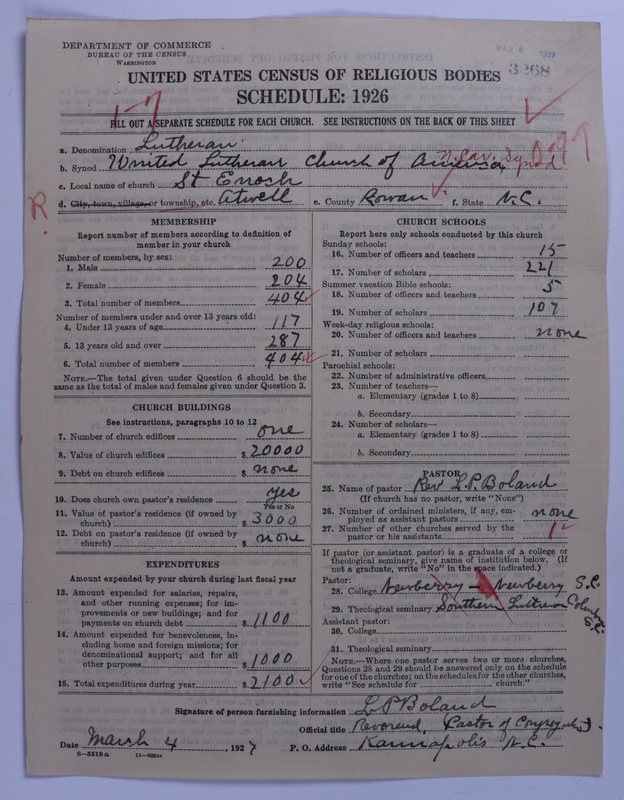 DEPARTMENT OF COMMERCE
BUREAU OF THE CENSUS
WASHINGTON
MAR 5 1927
3268
UNITED STATES CENSUS OF RELIGIOUS BODIES
SCHEDULE: 1926
1-7
FILL OUT A SEPARATE SCHEDULE FOR EACH CHURCH. SEE INSTRUCTIONS ON THE BACK OF THIS SHEET
a. Denomination Lutheran
b. Synod United Lutheran Church of America N. Car. Synod
c. Local name of church St Enoch
d. City, town, village, or township, etc. Atwell e. County Rowan f. State N.C.
R
MEMBERSHIP
Report number of members according to definition of
member in your church
Number of members, by sex:
1. Male 200
2. Female 204
3. Total number of members 404
Number of members under and over 13 years old:
4. Under 13 years of age 117
5. 13 years old and over 287
6. Total number of members 404
NOTE.—The total given under Question 6 should be the
same as the total of males and females given under Question 3.
CHURCH BUILDINGS
See instructions, paragraphs 10 to 12
7. Number of church edifices one
8. Value of church edifices $ 20000
9. Debt on church edifices $ none
10. Does church own pastor's residence yes
Yes or No
11. Value of pastor's residence (if owned by
church) $ 3000
12. Debt on pastor's residence (if owned by
church) $ none
EXPENDITURES
Amount expended by your church during last fiscal year
13. Amount expended for salaries, repairs,
and other running expenses; for im-
provements or new buildings; and for
payments on church debt $ 1100
14. Amount expended for benevolences, in-
cluding home and foreign missions; for
denominational support; and for all
other purposes $ 1000
15. Total expenditures during year $ 2100
CHURCH SCHOOLS
Report here only schools conducted by this church
Sunday schools:
16. Number of officers and teachers 15
17. Number of scholars 221
Summer vacation Bible schools:
18. Number of officers and teachers 5
19. Number of scholars 107
Week-day religious schools:
20. Number of officers and teachers none
21. Number of scholars
Parochial schools:
22. Number of administrative officers
23. Number of teachers—
a. Elementary (grades 1 to 8)
b. Secondary
24. Number of scholars—
a. Elementary (grades 1 to 8)
b. Secondary
PASTOR
25. Name of pastor Rev. L.P. Boland
(If church has no pastor, write "None")
26. Number of ordained ministers, if any, em-
ployed as assistant pastors none
27. Number of other churches served by the
pastor or his assistants
If pastor (or assistant pastor) is a graduate of a college or
theological seminary, give name of institution below. (If
not a graduate, write "No" in the space indicated.)
Pastor:
28. College Newberry - Newberry S.C.
29. Theological seminary Southern Lutheran Columbia S.C.
Assistant pastor:
30. College
31. Theological seminary
NOTE.—Where one pastor serves two or more churches,
Questions 28 and 29 should be answered only on the schedule
for one of the churches; on the schedules for the other churches,
write "See schedule for church."
Signature of person furnishing information L.P. Boland
Official title Reverend, Pastor of
Date March 4, 1927 P. O. Address Kannapolis N.C.
8—5518a 11—9264a